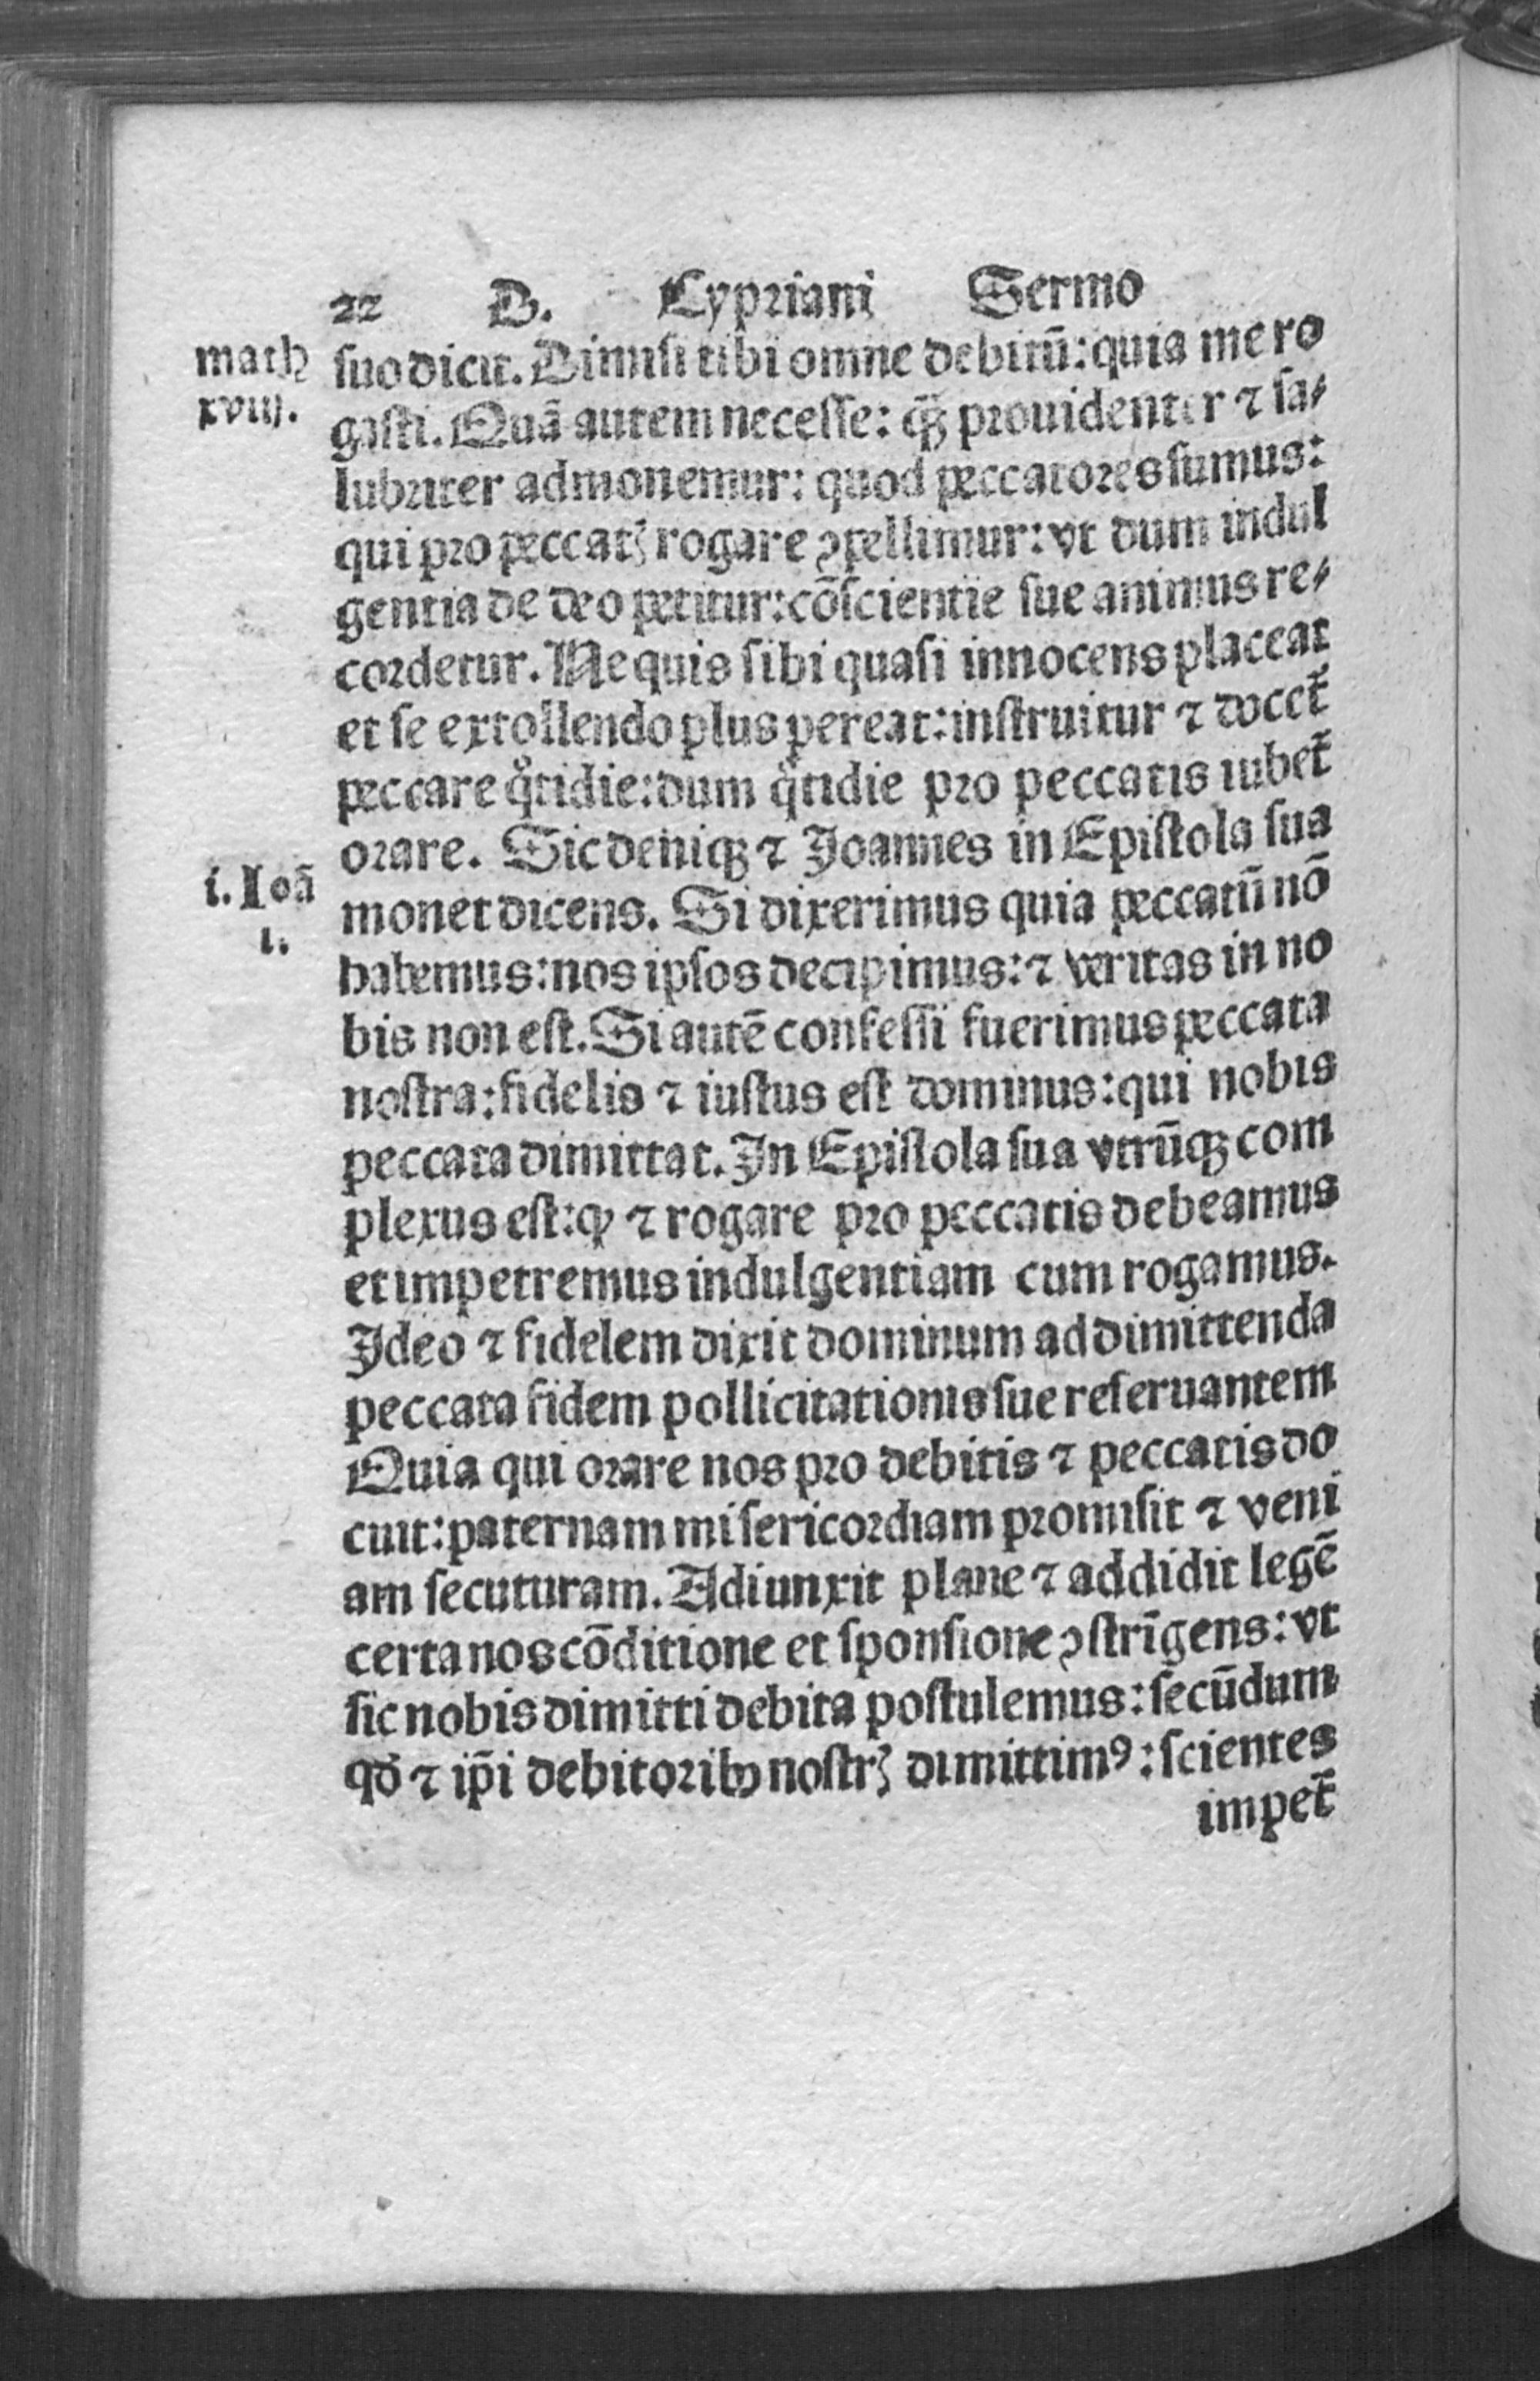 22 D. Cypriani Sermo
math
xviij.
suo dicit. Dimisi tibi omne debitū: quia me ro
gasti. Quā autem necesse: q̄ꝫ prouidenter ⁊ sa⸗
lubriter admonemur: quod peccatores sumus:
qui pro peccatꝭ rogare ꝯpellimur: vt dum indul
gentia de deo petitur: cōscientie sue animus re⸗
cordetur. Ne quis sibi quasi innocens placeat
et se extollendo plus pereat: instruitur ⁊ docet̄
peccare qͦtidie: dum qͦtidie pro peccatis iubet̄
orare. Sic deniqꝫ ⁊ Joannes in Epistola sua
i. Ioā
i.
monet dicens. Si dixerimus quia peccatū nō
habemus: nos ipsos decipimus: ⁊ veritas in no
bis non est. Si autē confessi fuerimus peccata
nostra: fidelis ⁊ iustus est dominus: qui nobis
peccata dimittat. In Epistola sua vtrūqꝫ com
plexus est: ꝙ ⁊ rogare pro peccatis debeamus
et impetremus indulgentiam cum rogamus.
Ideo ⁊ fidelem dixit dominum ad dimittenda
peccata fidem pollicitationis sue reseruantem
Quia qui orare nos pro debitis ⁊ peccatis do
cuit: paternam misericordiam promisit ⁊ veni
am secuturam. Adiunxit plane ⁊ addidit legē
certa nos cōditione et sponsione ꝯstrīgens: vt
sic nobis dimitti debita postulemus: secūdum
qđ ⁊ ip̄i debitoribꝫ nostrꝭ dimittimꝰ: scientes
impet̄